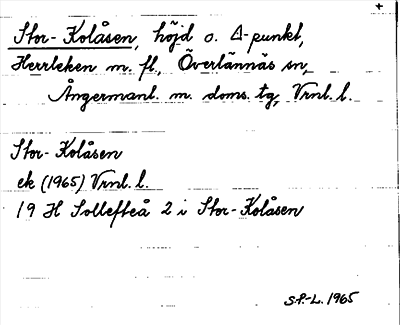 Stor-Kolåsen, höjd o. Δ-punkt,
Herrleken m. fl., Överlännäs sn,
Ångermanl. m. doms. tg, Vrnl. l.
Stor-Kolåsen
ek (1965) Vrnl. l.
19 H Sollefteå 2 i Stor-Kolåsen
S.P.-L. 1965